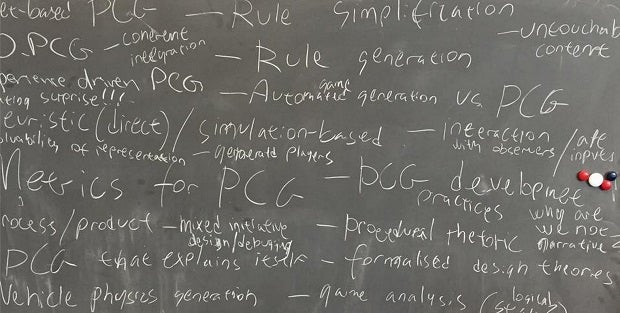 et-based PCG — Rule simplification
— untouchab
content
O.PCG — coherent
integration — Rule generation
perience driven PCG
ating surprise!!! — Automated game generation vs PCG
euristic (direct) / simulation-based — interaction
with observers / alt
inputs
olvability of representation — generated players
Metrics for PCG — PCG development
practices
why are
we not
narrative?
rocess/product — mixed initiative
design/debugging — procedural rhetoric
PCG that explains itself — formalised design theories
Vehicle physics generation — game analysis (logical